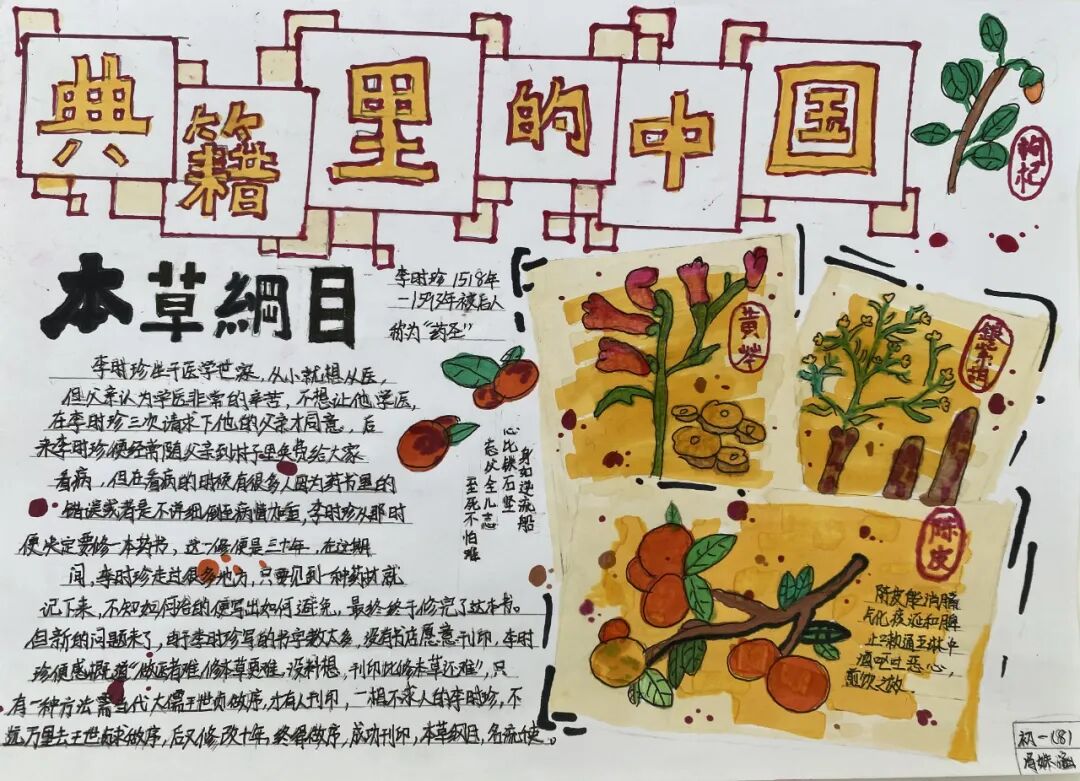 典籍里的中国
枸杞
本草綱目
李时珍 1518年
-1593年被后人
称为“药圣”
李时珍生于医学世家，从小就想从医，
但父亲认为学医非常的辛苦，不想让他学医，
在李时珍三次请求下他的父亲才同意。后
来李时珍便经常随父亲到村子里免费给大家
看病，但在看病的时候有很多人因为药书里的
错误或者是不详细倒至病情加重，李时珍从那时
便决定要修一本药书，这一修便是三十年，在这期
间，李时珍走过很多地方，只要见到一种药材就
记下来，不知如何治的便写出如何避免，最终终于修完了这本书。
但新的问题来了，由于李时珍写的书字数太多，没有书店愿意刊印，李时
珍便感概道“做医者难，修本草更难，没料想，刊印此修本草还难”，只
有一种方法需当代大儒王世贞做序，才有人刊印，一相不求人的李时珍，不
远万里去王世贞求做序，后又修改十年，终得做序，成功刊印，本草綱目，名流千史。
身如逆流船
心比铁石坚
忘父全儿志
至死不怕难
黄芩
柴胡
陈皮
陈皮能消膈
气化痰涎和脾
止咳通五淋中
酒呕吐恶心
煎饮之效
初一(8)